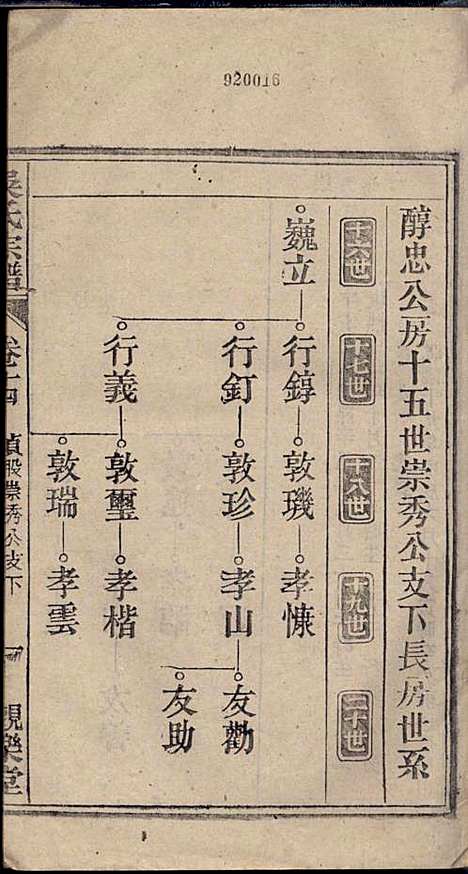 920016
醇忠公房十五世崇秀公支下長房世系
十六世
十七世
十八世
十九世
二十世
巍立
行錞
敦璣
孝慷
行釘
敦珍
孝山
友勸
友助
行義
敦璽
孝楷
敦瑞
孝雲
吳氏宗譜
卷十四
貞股崇秀公支下
一
親樂堂